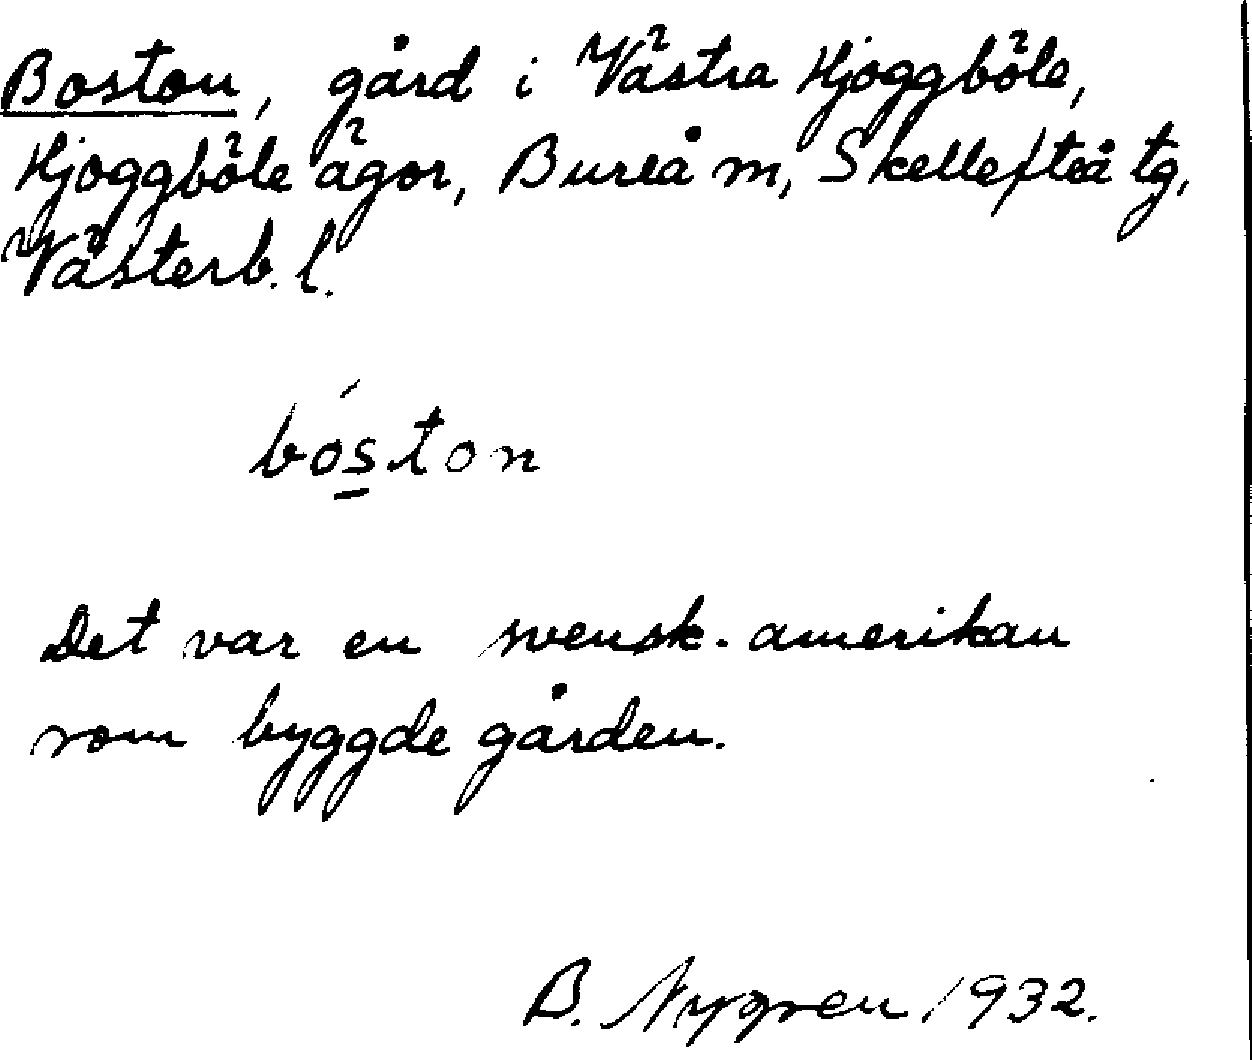 Boston, gård i Västra Hjoggböle,
Hjoggböle ägor, Bureå m, Skellefteå tg,
Västerb. l.
bós̱ton
Det var en svensk-amerikan
som byggde gården.
B. Nygren 1932.